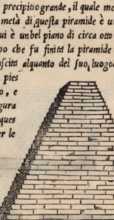 precipitio grande, il quale mo
metà di questa piramide è u
ui è un bel piano di circa otto
po che fu finita la piramide
oscito alquanto del suo luogo
pies
o, e
gura
ques
er le